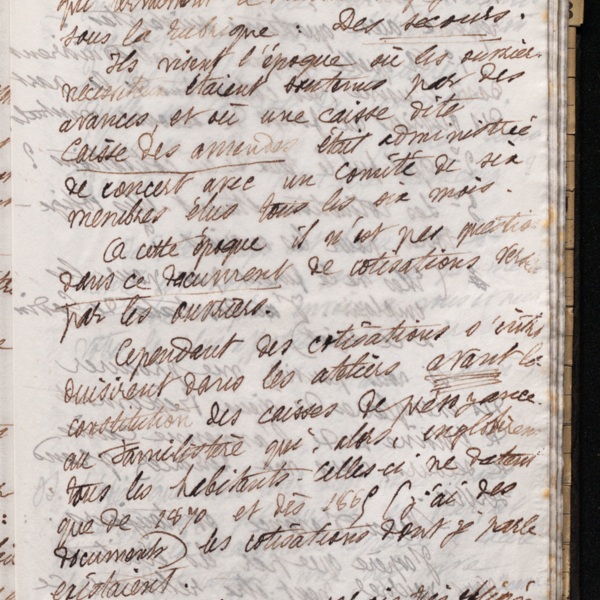 sous la rubrique : Des secours.
Ils visent l'époque où les ouvriers
nécessiteux étaient soutenus par des
avances, et où une caisse dite
Caisse des amendes était administrée
de concert avec un comité de six
membres élus tous les six mois.
A cette époque il n'est pas question
dans ce document de cotisations
par les ouvriers.
Cependant des cotisations s'intro
duisirent dans les ateliers avant la
constitution des caisses de prévoyance
au Familistère qui, alors, englobèrent
tous les habitants. Celles-ci ne datent
que de 1870 et dès (j'ai des
documents) les cotisations dont je parle
existaient.